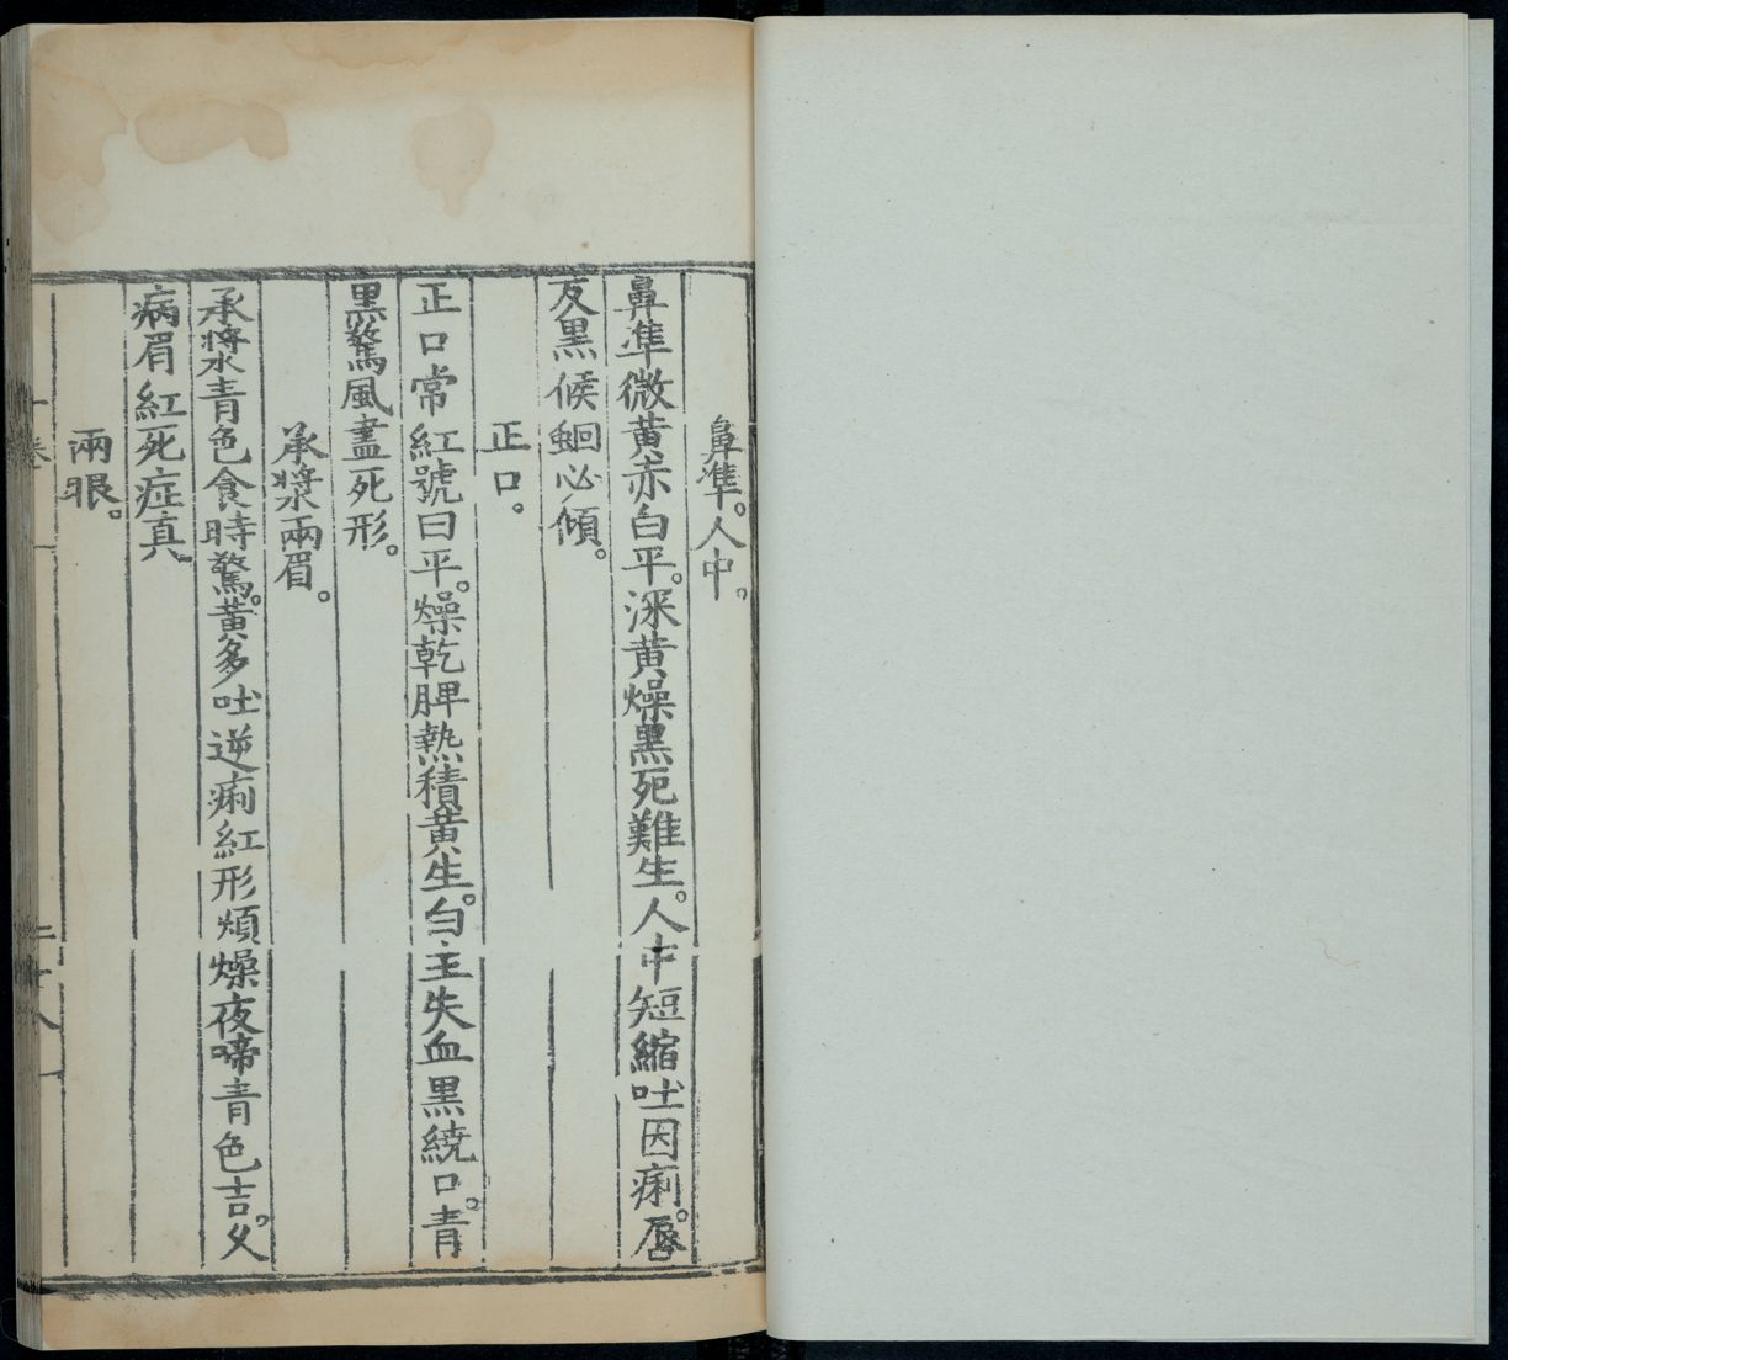 鼻準。人中。
鼻準微黃赤白平。深黃燥黑死難生。人中短縮吐因痢。唇
反黑候蛔必傾。
正口。
正口常紅號曰平。燥乾脾熱積黃生。白主失血黑繞口。青
黑驚風盡死形。
承漿兩眉。
承漿青色食時驚。黃多吐逆痢紅形煩燥夜啼青色吉。久
病眉紅死症真
兩眼。
卷一
二十八